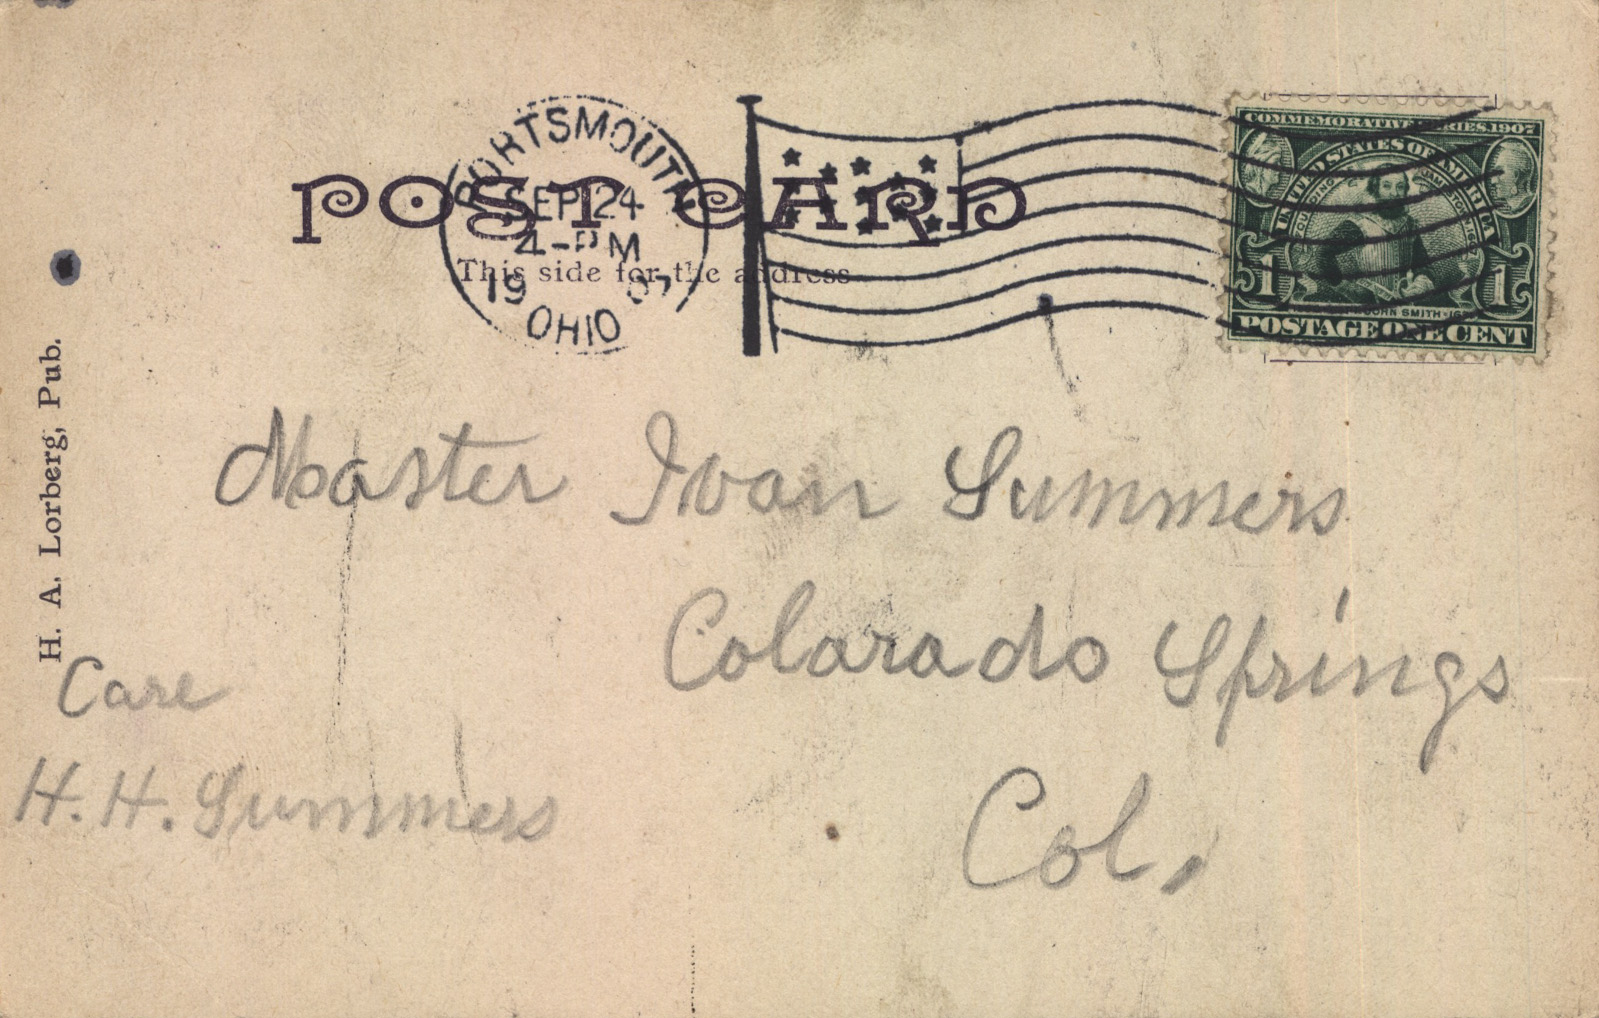 PORTSMOUTH
SEP 24
4-PM
1907
OHIO
POST CARD
This side for the address
COMMEMORATIVE SERIES 1907
UNITED STATES OF AMERICA
FOUNDING OF JAMESTOWN 1607
JOHN SMITH
1 1
POSTAGE ONE CENT
H. A. Lorberg, Pub.
Master Ivan Summers
Colarado Springs
Col.
Care
H. H. Summers